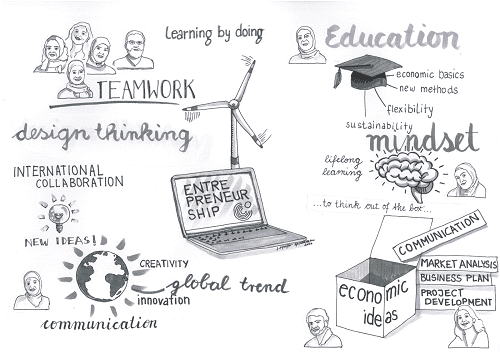 Learning by doing
Education
TEAMWORK
economic basics
new methods
flexibility
sustainability
design thinking
mindset
lifelong
learning
INTERNATIONAL
COLLABORATION
ENTRE
PRENEUR
SHIP
...to think out of the box...
NEW IDEAS!
COMMUNICATION
CREATIVITY
MARKET ANALYSIS
global trend
BUSINESS PLAN
innovation
economic
ideas
PROJECT
DEVELOPMENT
communication